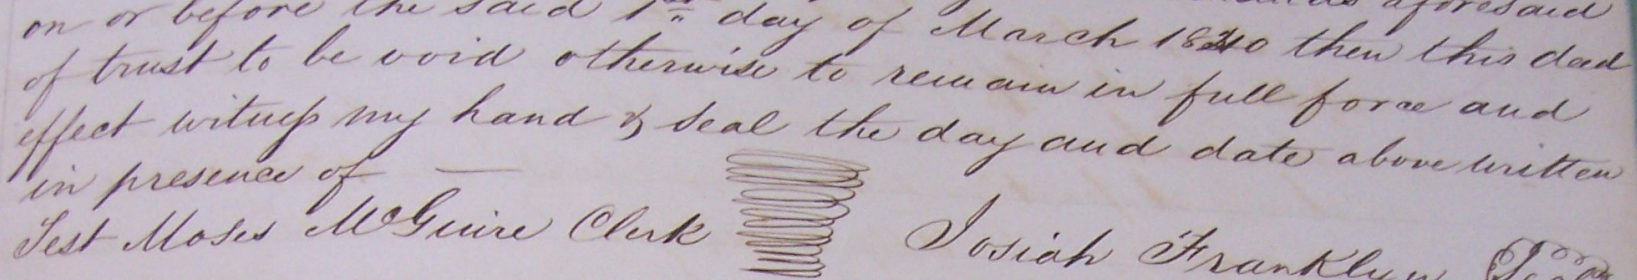 on or before the said 1st day of March 1840 then this deed
of trust to be void otherwise to remain in full force and
effect witness my hand & seal the day and date above written
in presence of —
Test Moses McGuire Clerk Josiah Franklyn Seal